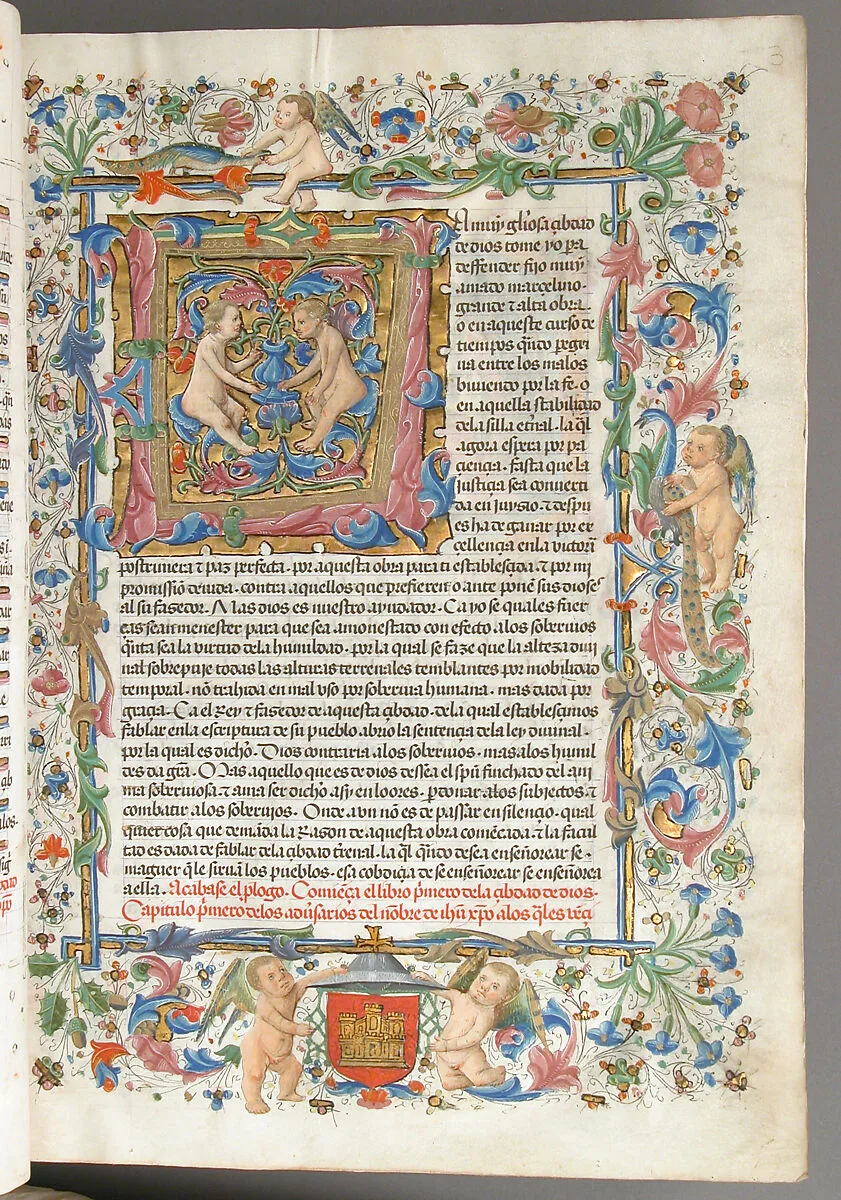 A muy gl'iosa çibdad
de dios tome yo pa
deffender fijo muy
amado marcelino·
grande τ alta obra·
o en aqueste curso de
tiempos q̃ndo pegri
na entre los malos
biuiendo por la fe· o
en aquella stabilidad
dela silla et̃nal· la q̃l
agora espera por pa
çiençia· fasta que la
justiçia sea conuerti
da en juysio· τ despu
es ha de ganar por ex
çellençia enla victoria
postrimera τ paz perfecta· por aquesta obra para ti establesçida τ por mi
promissiõ deuida· contra aquellos que prefieren o ante ponẽ sus dioses
al su fasedor· Mas dios es nuestro ayudador· Ca yo se quales fuer
ças sean menester para que sea amonestado con efecto alos soberuios
q̃nta sea la uirtud dela humildad· por la qual se faze que la alteza diui
nal sobrepuje todas las alturas terrenales temblantes por mobilidad
temporal· nõ trahida en mal vso por soberuia humana· mas dada por
graçia· Ca el Rey τ fasedor de aquesta çibdad· dela qual establesçimos
fablar enla escriptura de su pueblo abrio la sentençia dela ley diuinal·
por la qual es dicho· Dios contraria alos soberuios· mas alos humil
des da grã· Mas aquello que es de dios dessea el spũ finchado del ani
ma soberuiosa τ ama ser dicho asy en loores· perdonar alos subjectos τ
combatir alos soberuios· Onde avn nõ es de passar en silençio· qual
quier cosa que demãda la Rason de aquesta obra comẽcada· τ la facul
tad es dada de fablar dela çibdad tr̃enal· la q̃l q̃ndo desea enseñorear se·
maguer q̃ le siruã los pueblos· esa cobdiçia de se enseñorear se enseñorea
a ella· Acabase el plogo· Comiẽça el libro p̃mero dela çibdad de dios·
Capitulo p̃mero delos adũsarios del nõbre de ihũ xp̃o alos q̃les